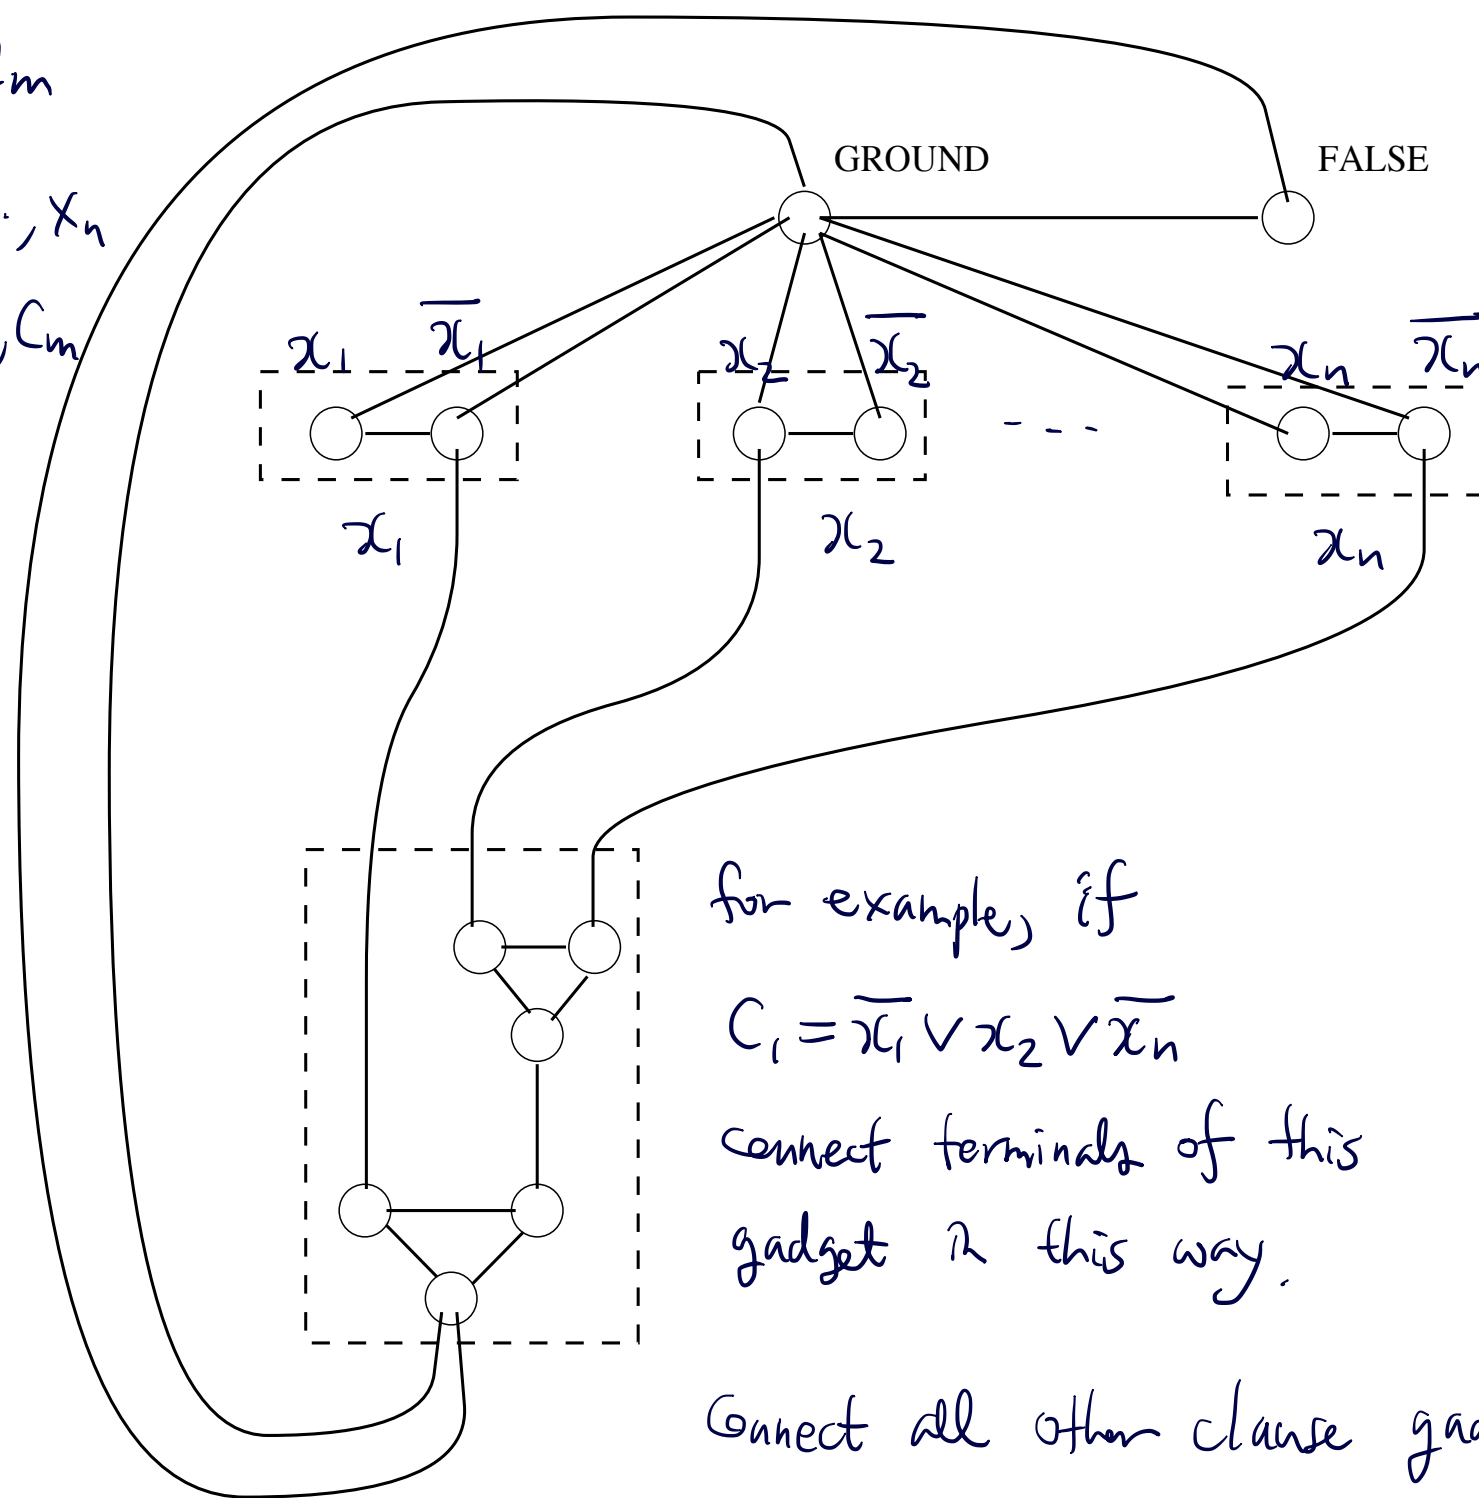 m
GROUND FALSE
, Xₙ
, Cₘ
x₁ x̅₁ x₂ x̅₂ xₙ x̅ₙ
- - -
x₁ x₂ xₙ
for example, if
C₁ = x̅₁ ∨ x₂ ∨ x̅ₙ
connect terminals of this
gadget in this way.
Connect all other clause gad